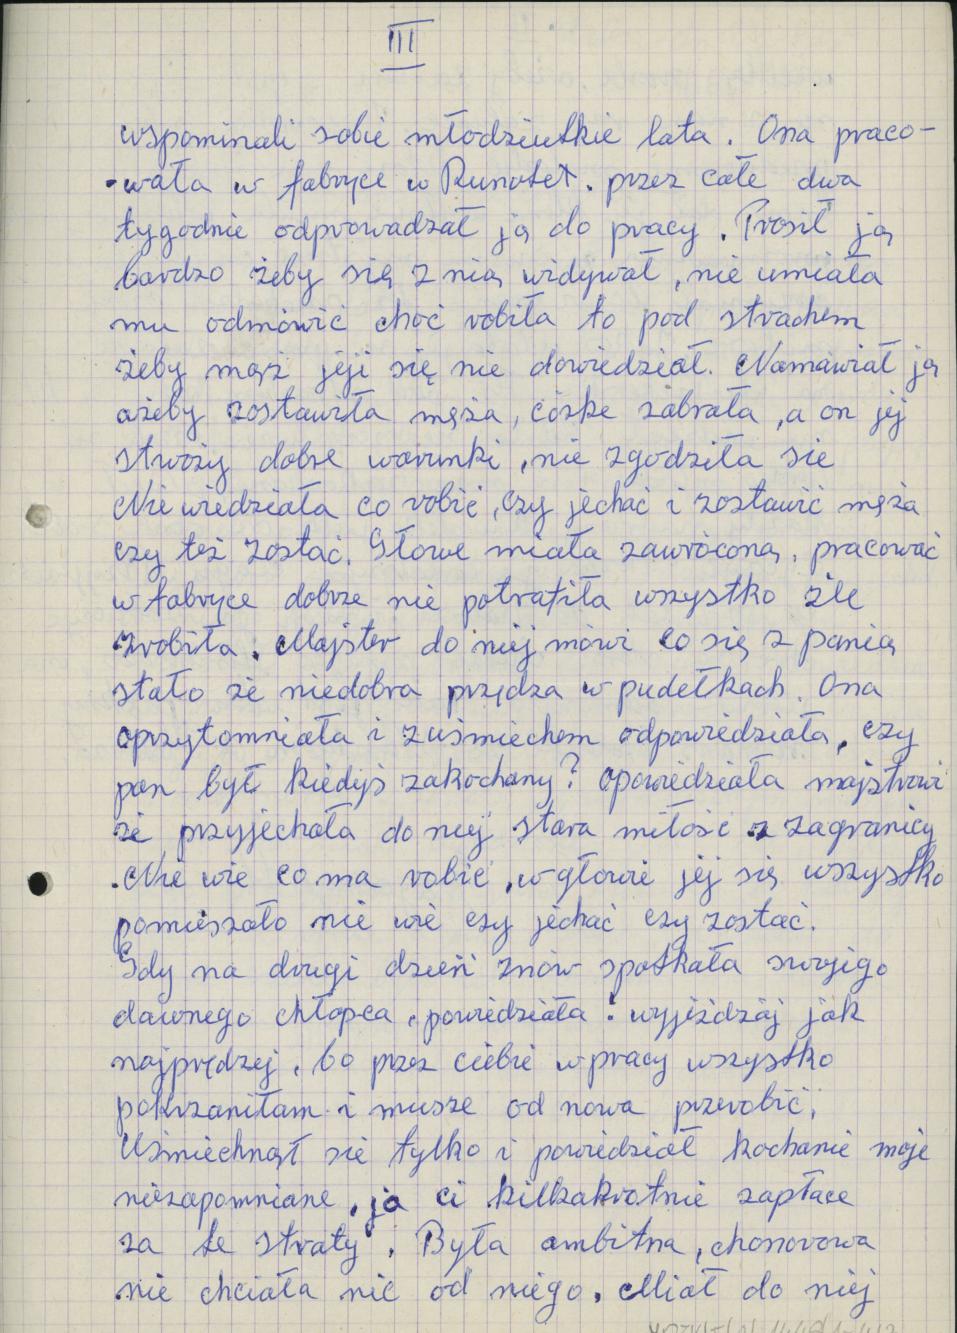 III
wspominali sobie młodziutkie lata. Ona praco-
wała w fabryce w Runotex. przez całe dwa
tygodnie odprowadzał ją do pracy. Prosił ją
bardzo żeby się z nią widywał, nie umiała
mu odmówić choć robiła to pod strachem
żeby mąż jeji się nie dowiedział. Namawiał ją
ażeby zostawiła męża, córke zabrała, a on jej
stwoży dobre warunki, nie zgodziła sie
Nie wiedziała co robić, czy jechać i zostawić męża
czy też zostać. Głowe miała zawróconą, pracować
w fabryce dobrze nie potrafiła wszystko źle
zrobiła. Majster do niej mówi co się z panią
stało że niedobra przędza w pudełkach. Ona
oprzytomniała i zuśmiechem odpowiedziała, czy
pan był kiedyś zakochany? opowiedziała majstrowi
że przyjechała do niej stara miłość z zagranicy
. Nie wie co ma robić, w głowie jej się wszystko
pomieszało nie wie czy jechać czy zostać.
Gdy na drugi dzień znów spotkała swojigo
dawnego chłopca, powiedziała: wyjeżdżaj jak
najprędzej, bo przez ciebie w pracy wszystko
pokrzaniłam i musze od nowa przerobić,
Uśmiechnął sie tylko i powiedział kochanie moje
niezapomniane, ja ci kilkakrotnie zapłace
za te straty. Była ambitna, chonorowa
nie chciała nic od niego. Miał do niej